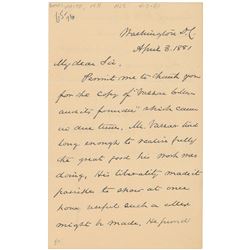 Washington DC
April 3. 1881
My dear Sir,
Permit me to thank you
for the copy of "Vassar Coll
" which came
in due time. Mr. Vassar lived
long enough to realize fully
the great good his work was
doing. His liberality made it
possible to show at once
how useful such a college
might be made. He found